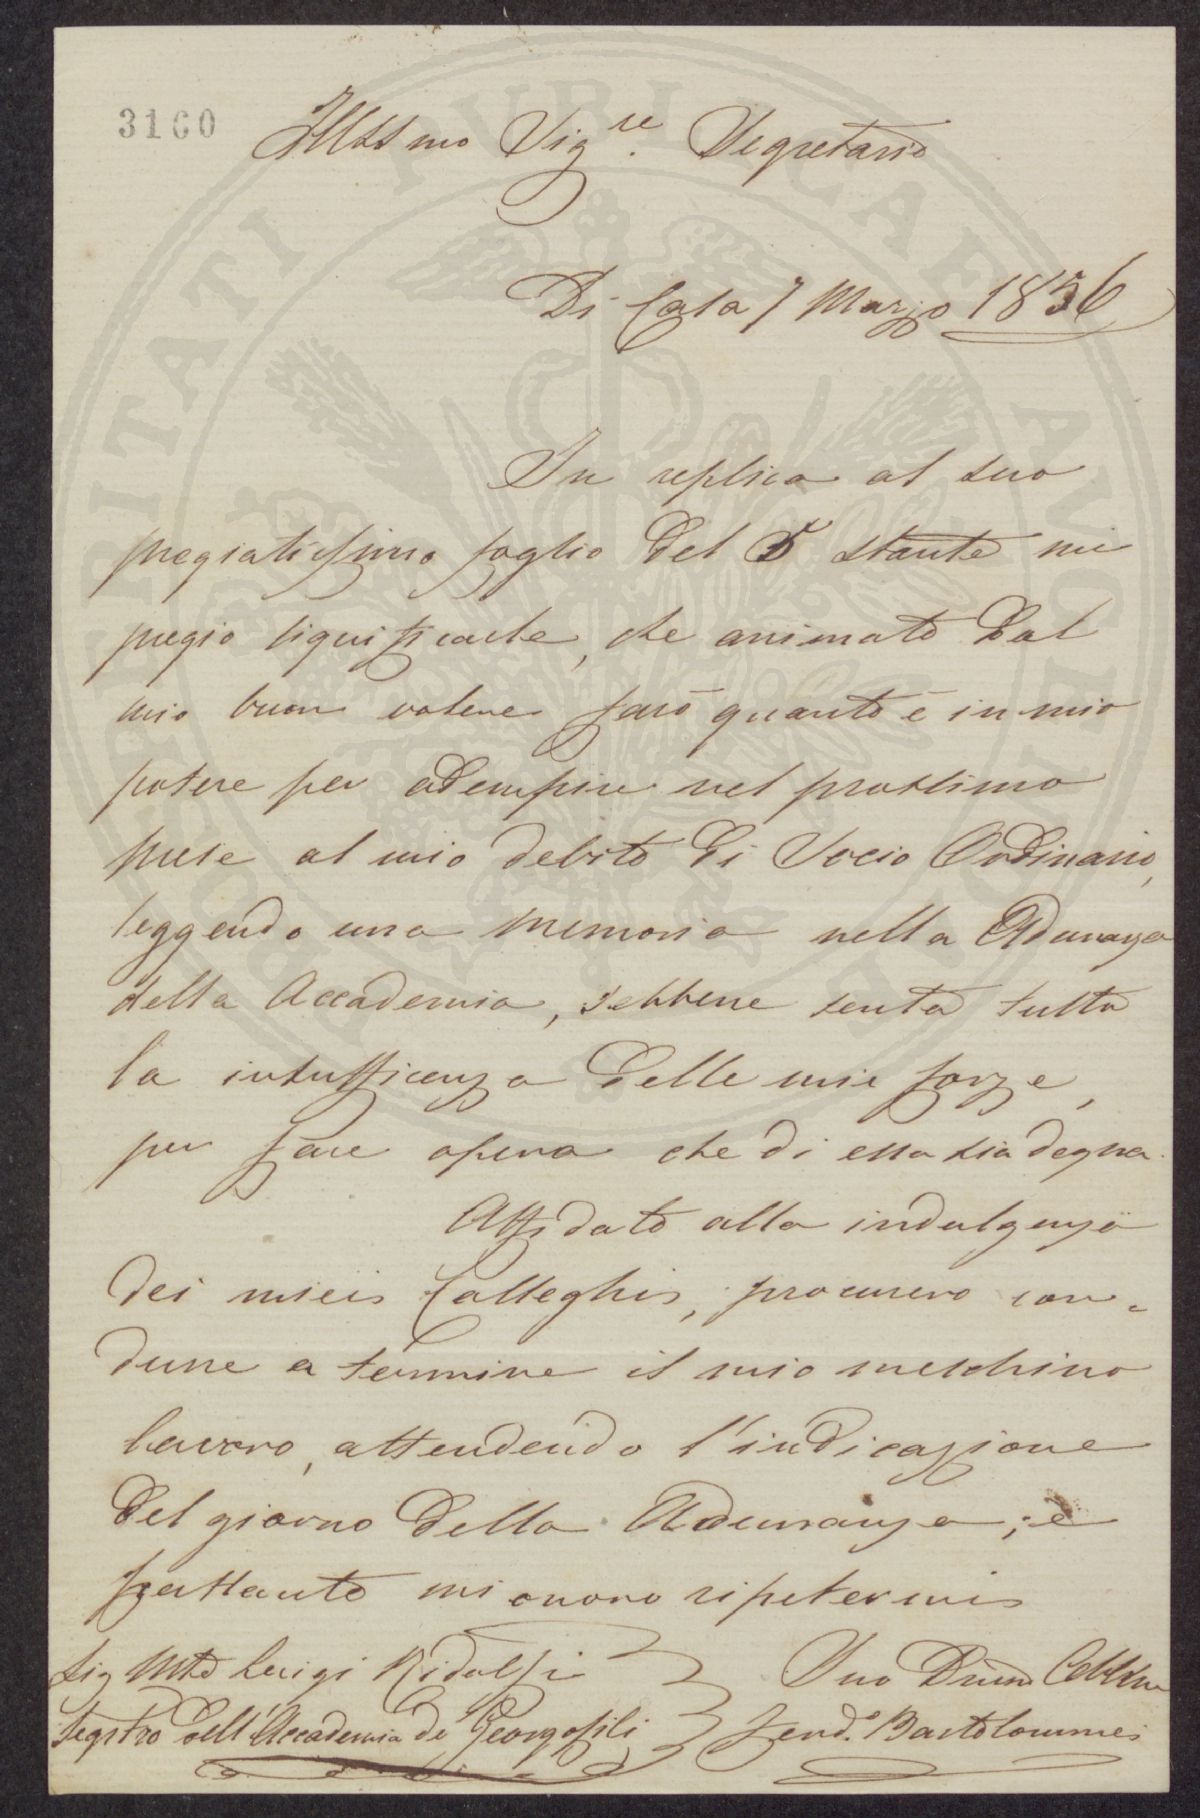 3160
Illmo Sigre. Segretario
Di Casa 7 Marzo 1856
In replica al suo
pregiatissimo foglio del 5 stante mi
pregio significarle, che animato dal
mio buon volere farò quanto è in mio
potere per adempire nel prossimo
mese al mio debito di Socio Ordinario,
leggendo una memoria nella Adunanza
della Accademia, sebbene senta tutta
la insufficenza delle mie forze,
per fare opera che di essa sia degna.
Affidato alla indulgenza
dei miei Colleghi, procurerò con-
durre a termine il mio meschino
lavoro, attendendo l'indicazione
del giorno della Adunanza; e
frattanto mi onoro ripetermi
Sig Mse Luigi Ridolfi
Segrtro dell'Accademia de Georgofili
Suo Devmo Collega
Ferd.o Bartolommei
PROSPERITATI PUBLICAE AUGENDAE